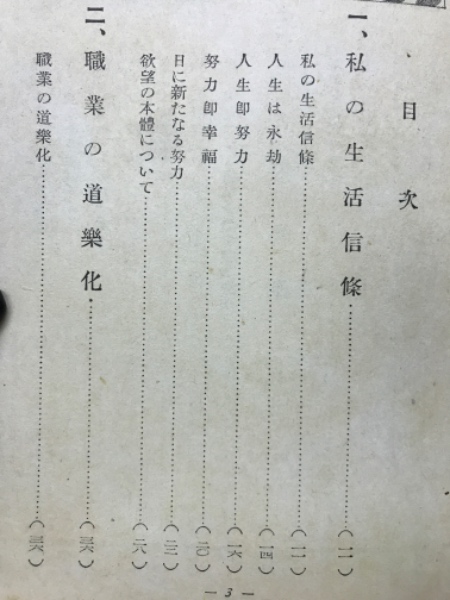 目次
一、私の生活信條……(一一)
私の生活信條……(一一)
人生は永劫……(一四)
人生卽努力……(一六)
努力卽幸福……(二〇)
日に新たなる努力……(二三)
欲望の本體について……(二八)
二、職業の道樂化……(三六)
職業の道樂化……(三六)
— 3 —